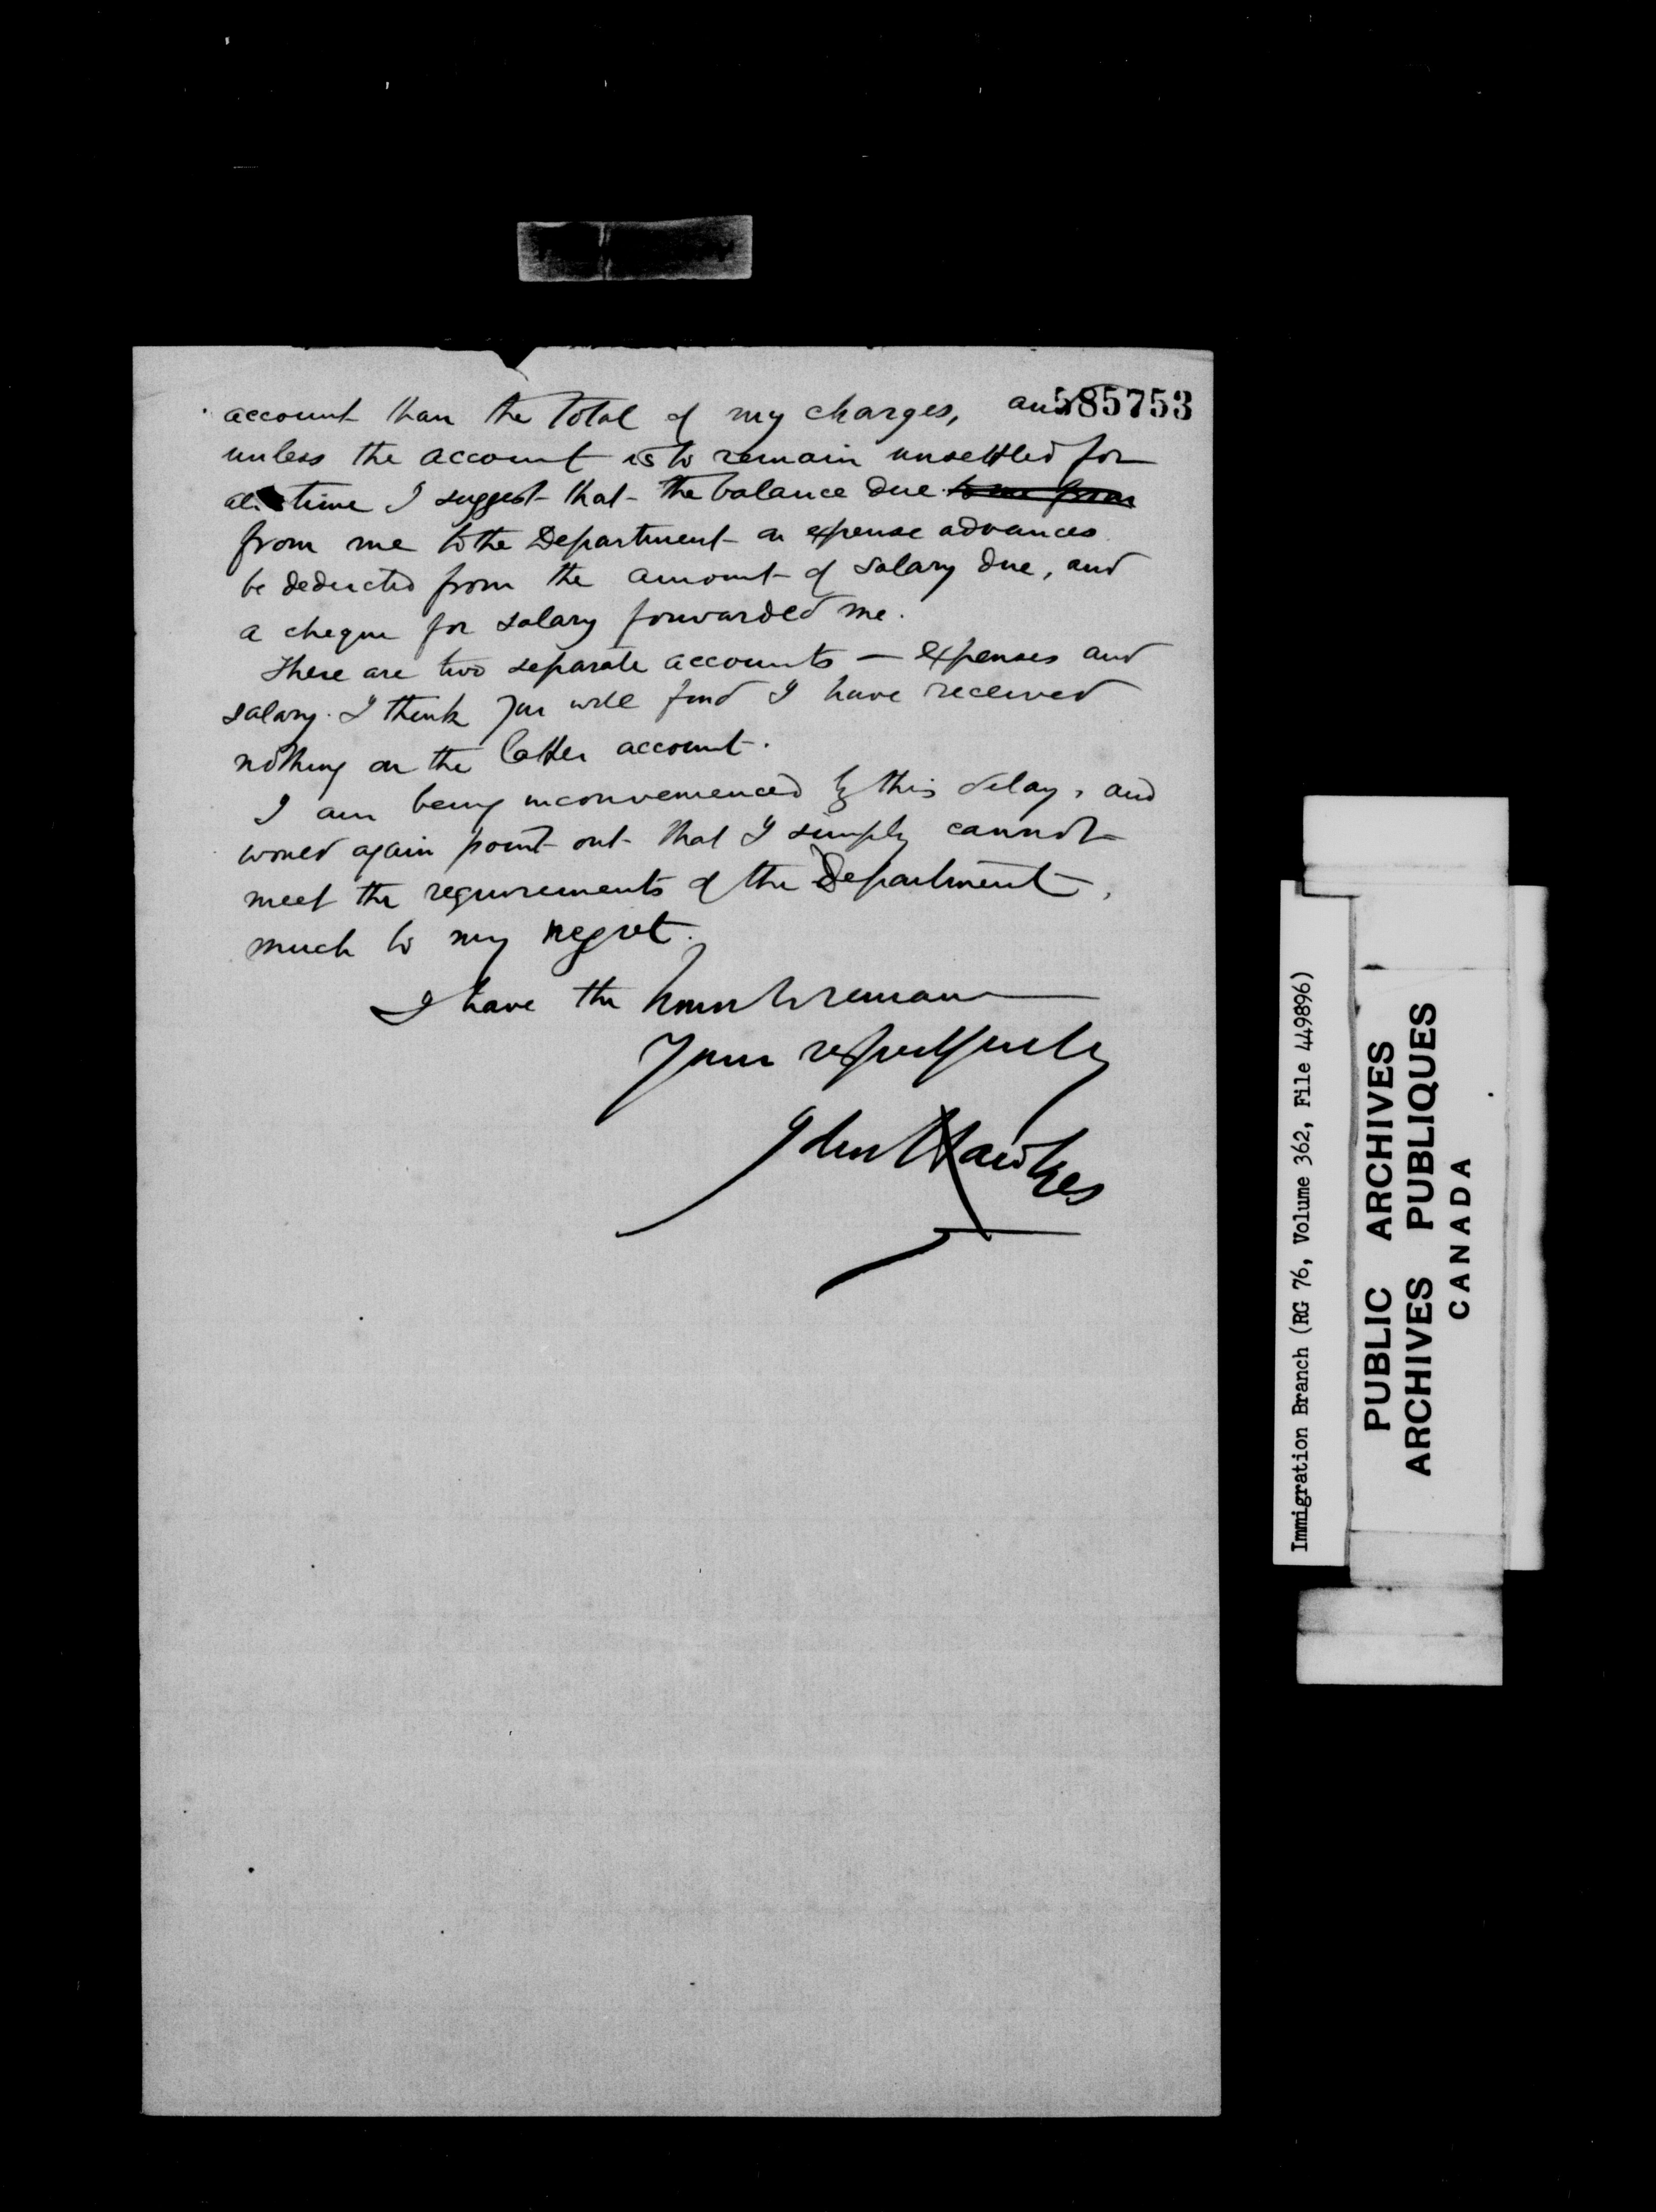 585753
account than the total of my charges, and
unless the account is to remain unsettled for
all time I suggest that the balance due to me from
from me to the Department on expense advances
be deducted from the amount of salary due, and
a cheque for salary forwarded me.
There are two separate accounts — expenses and
salary. I think you will find I have received
nothing on the latter account.
I am being inconvenienced by this delay, and
would again point out that I simply cannot
meet the requirements of the Department,
much to my regret.
I have the honor to remain
Yours respectfully
John Hawkes
Immigration Branch (RG 76, Volume 362, File 449896)
PUBLIC ARCHIVES
ARCHIVES PUBLIQUES
CANADA